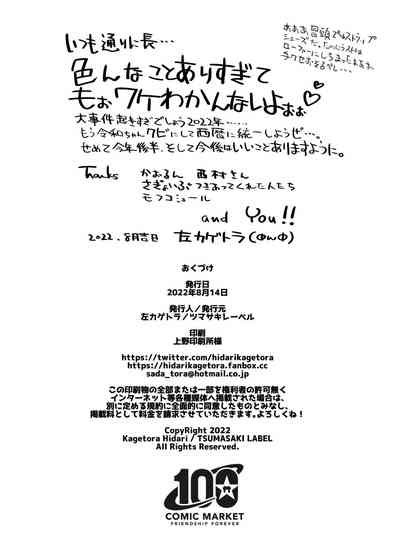 いつも通りに長…
色んなことありすぎて
もぉワケわかんないよぉぉ♡
大事件起きすぎでしょう2022年……
もう令和ちゃんクビにして西暦に統一しようぜ…。
せめて今年後半、そして今後はいいことありますように。
Thanks かおるん 西村さん
さぎょいぷつきあってくれた人たち
モフコミュール
and You!!
2022.8月吉日 左カゲトラ(ΦωΦ)
おくづけ
発行日
2022年8月14日
発行人／発行元
左カゲトラ／ツマサキレーベル
印刷
上野印刷所様
https://twitter.com/hidarikagetora
https://hidarikagetora.fanbox.cc
sada_tora@hotmail.co.jp
この印刷物の全部または一部を権利者の許可無く
インターネット等各種媒体へ掲載された場合は、
別に定める規約に全面的に同意したものとみなし、
掲載料として料金を請求させていただきます。よろしくね！
CopyRight 2022
Kagetora Hidari / TSUMASAKI LABEL
All Rights Reserved.
100
COMIC MARKET
FRIENDSHIP FOREVER